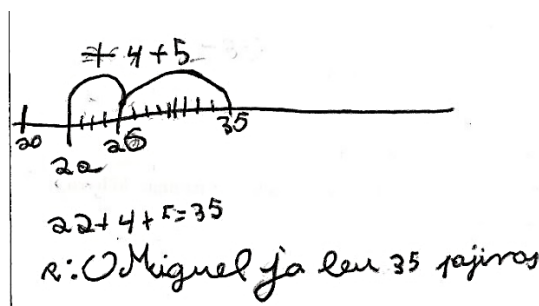 + 4 + 5
20
22
26
35
22 + 4 + 5 = 35
R: O Miguel ja leu 35 pajinas